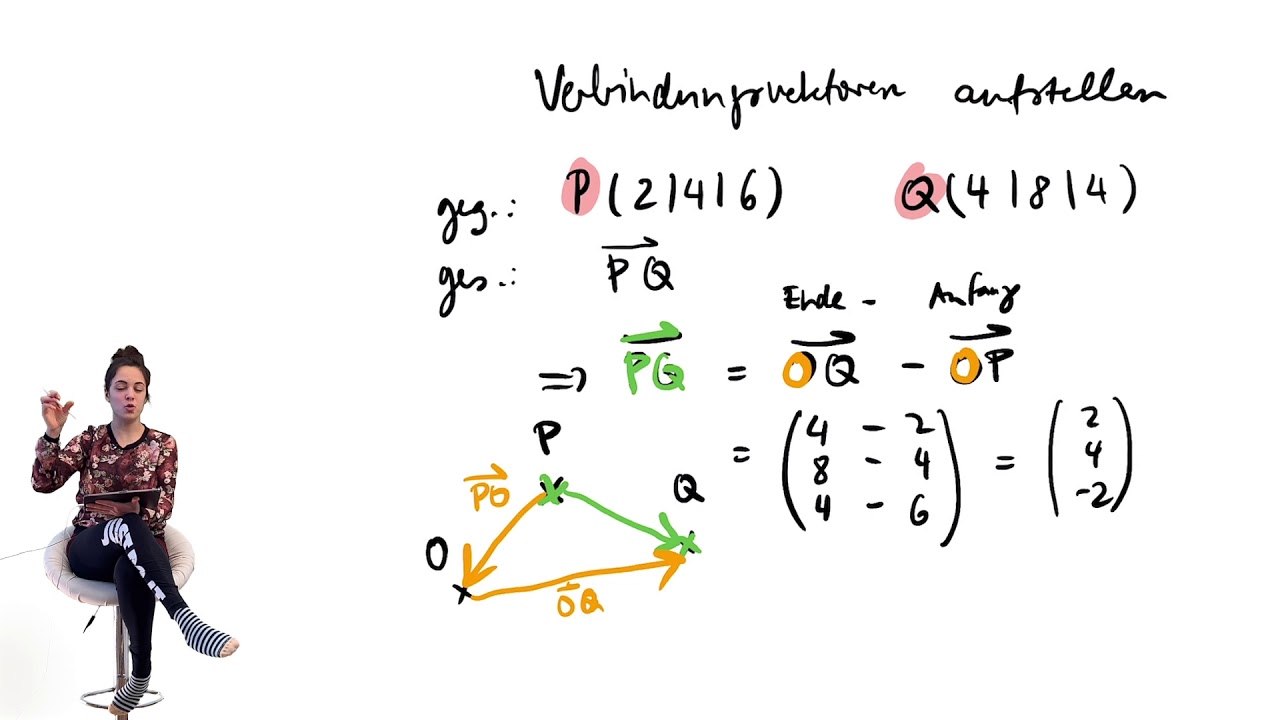 Verbindungsvektoren aufstellen
geg.: P(2|4|6) Q(4|8|4)
ges.: PQ
Ende - Anfang
=> PQ = OQ - OP
= (4 - 2 8 - 4 4 - 6) = (2 4 -2)
P
PO
Q
O
OQ